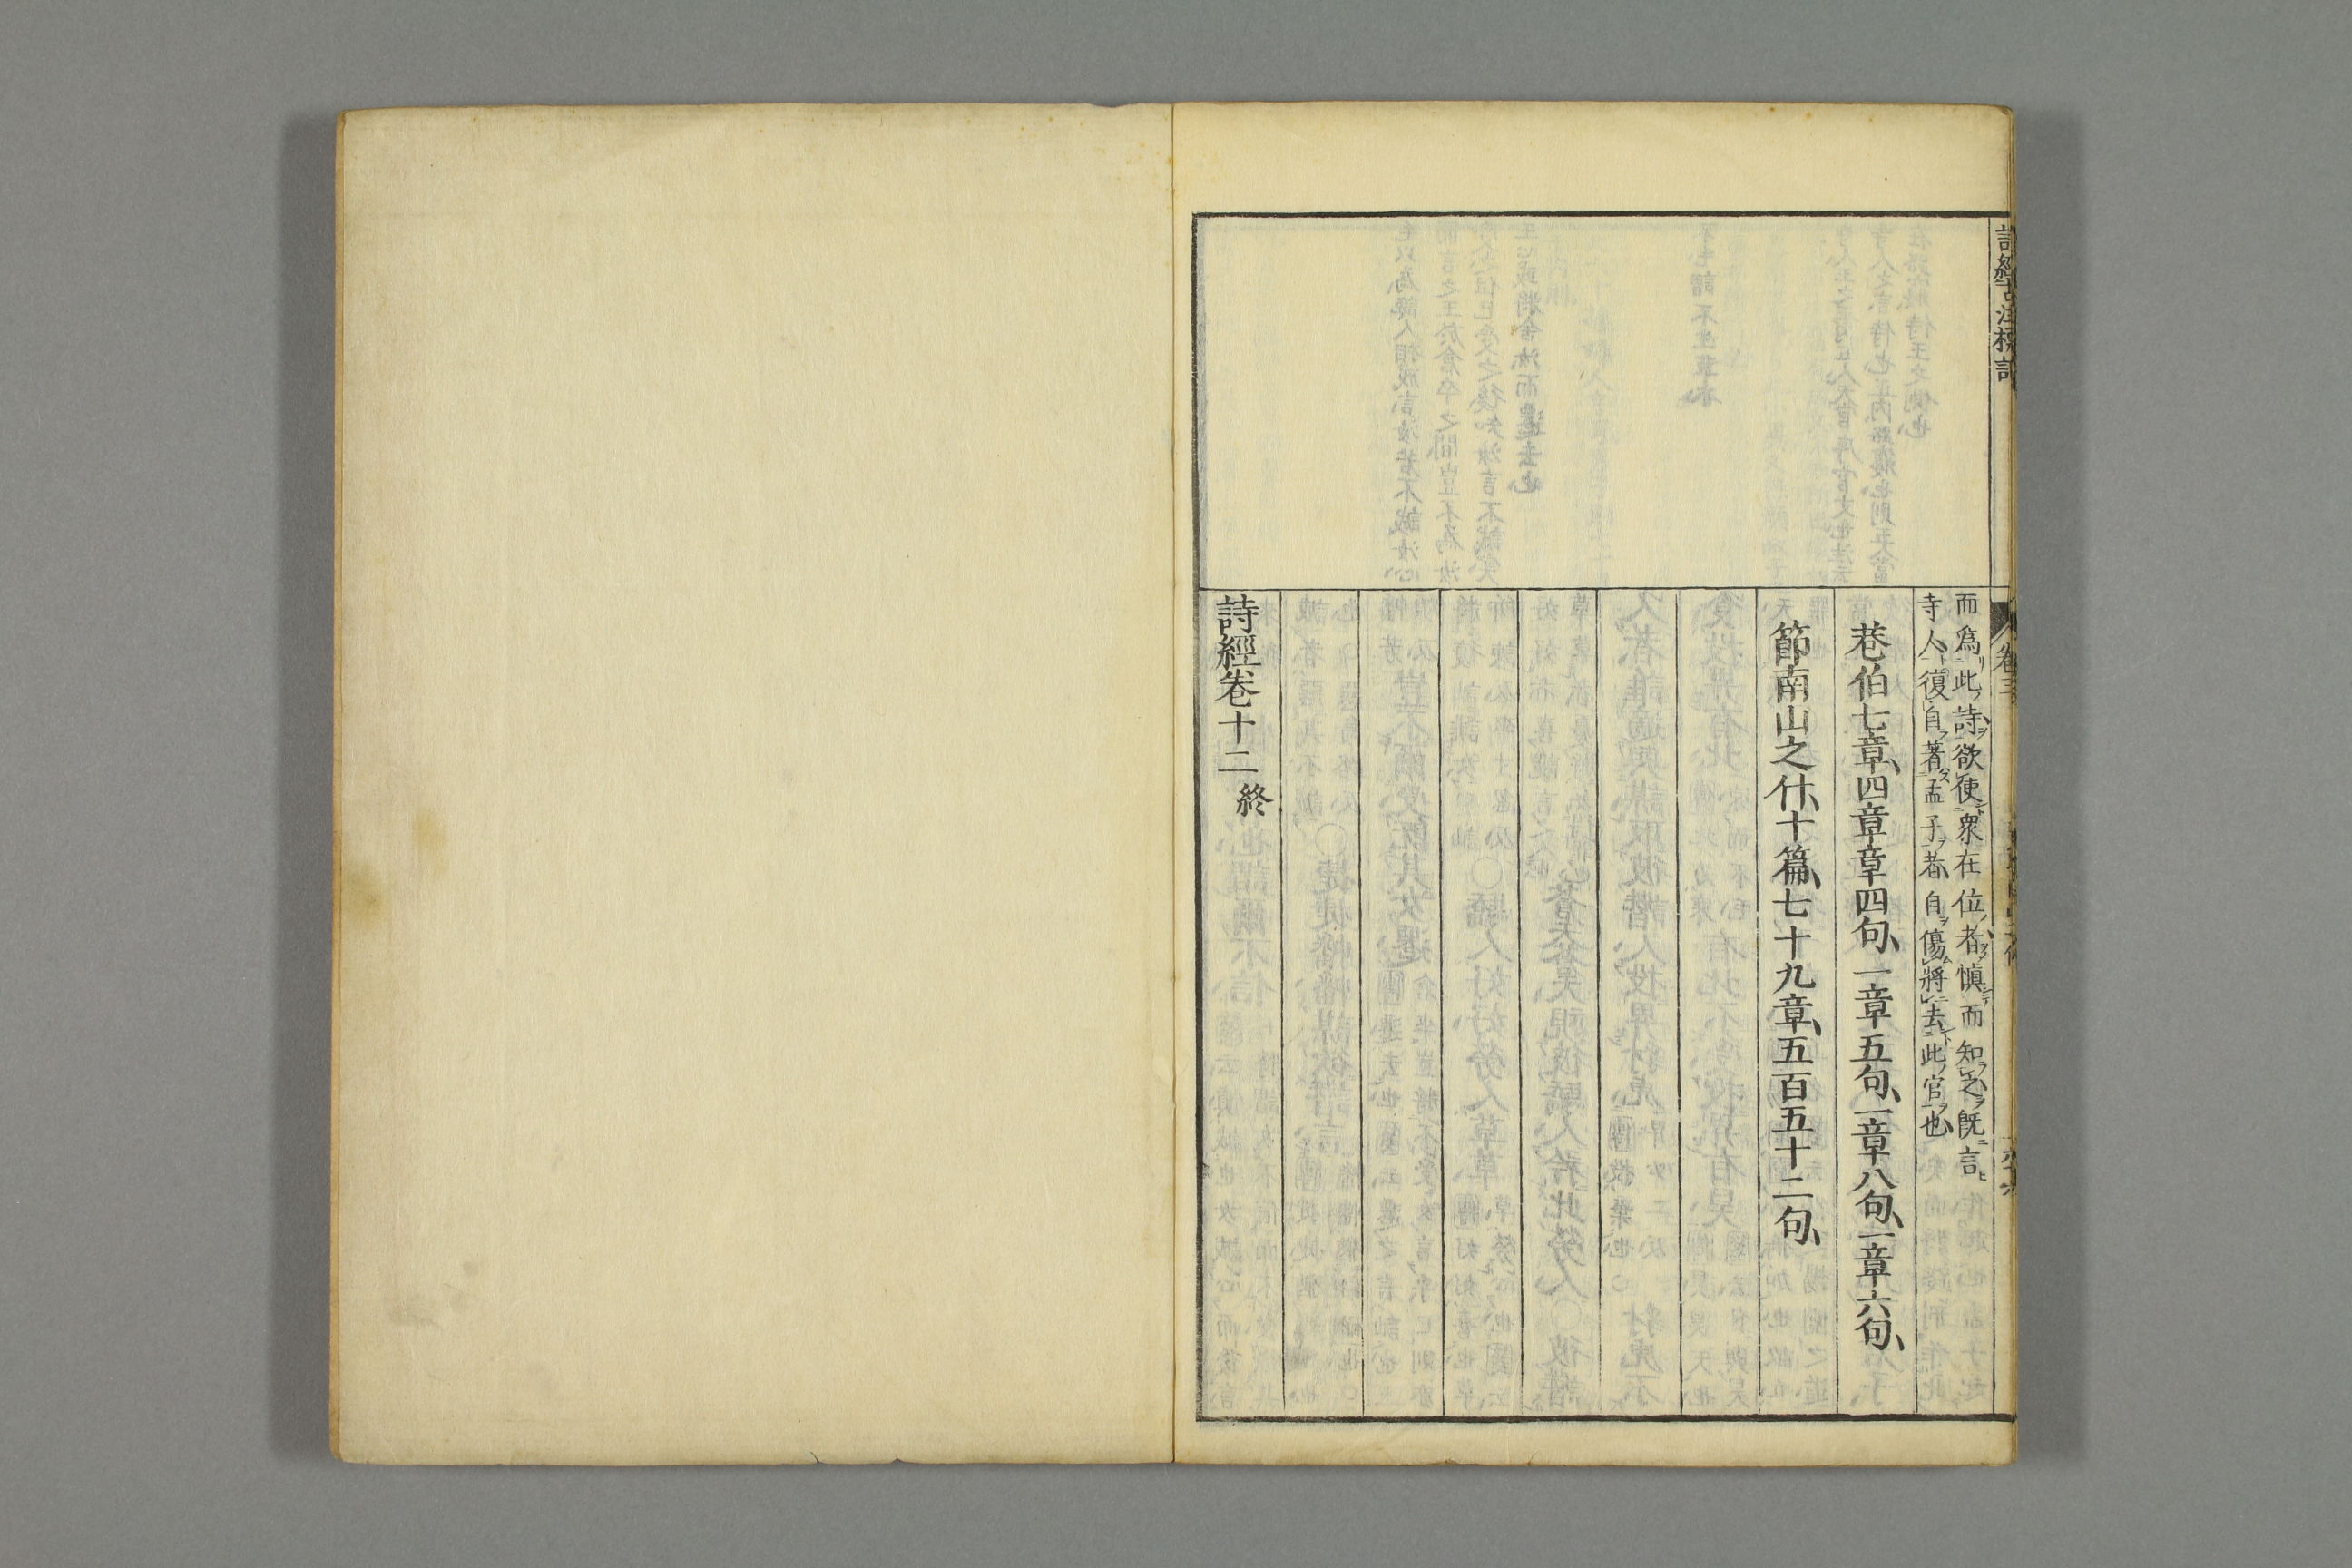 詩經古注標記
而爲此詩欲使衆在位者慎而知之既言
寺人復自著孟子者自傷將去此官也
巷伯七章四章章四句一章五句一章八句一章六句
節南山之什十篇七十九章五百五十二句
詩經卷十二 終